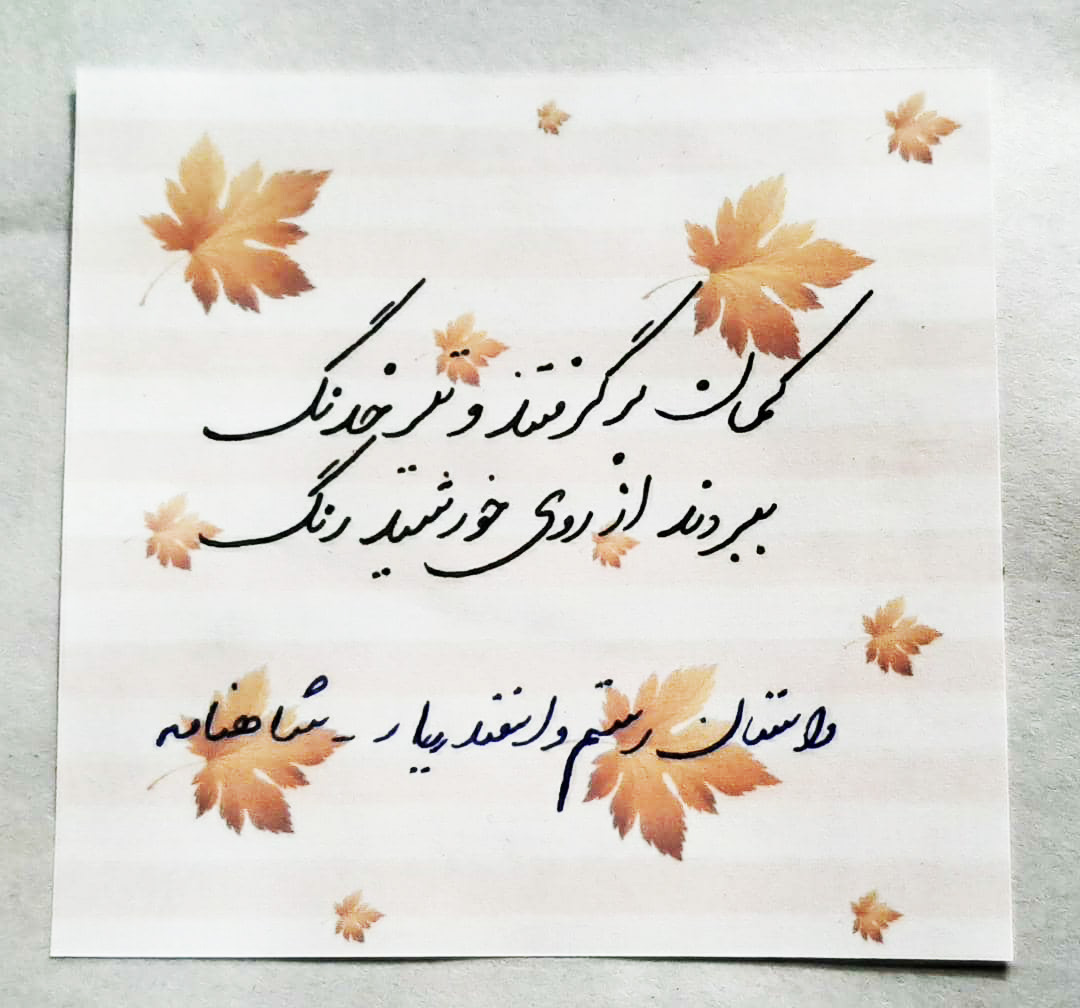 کمان برگرفتند و تیر خدنگ
ببردند از روی خورشید رنگ
داستان رستم و اسفندیار - شاهنامه